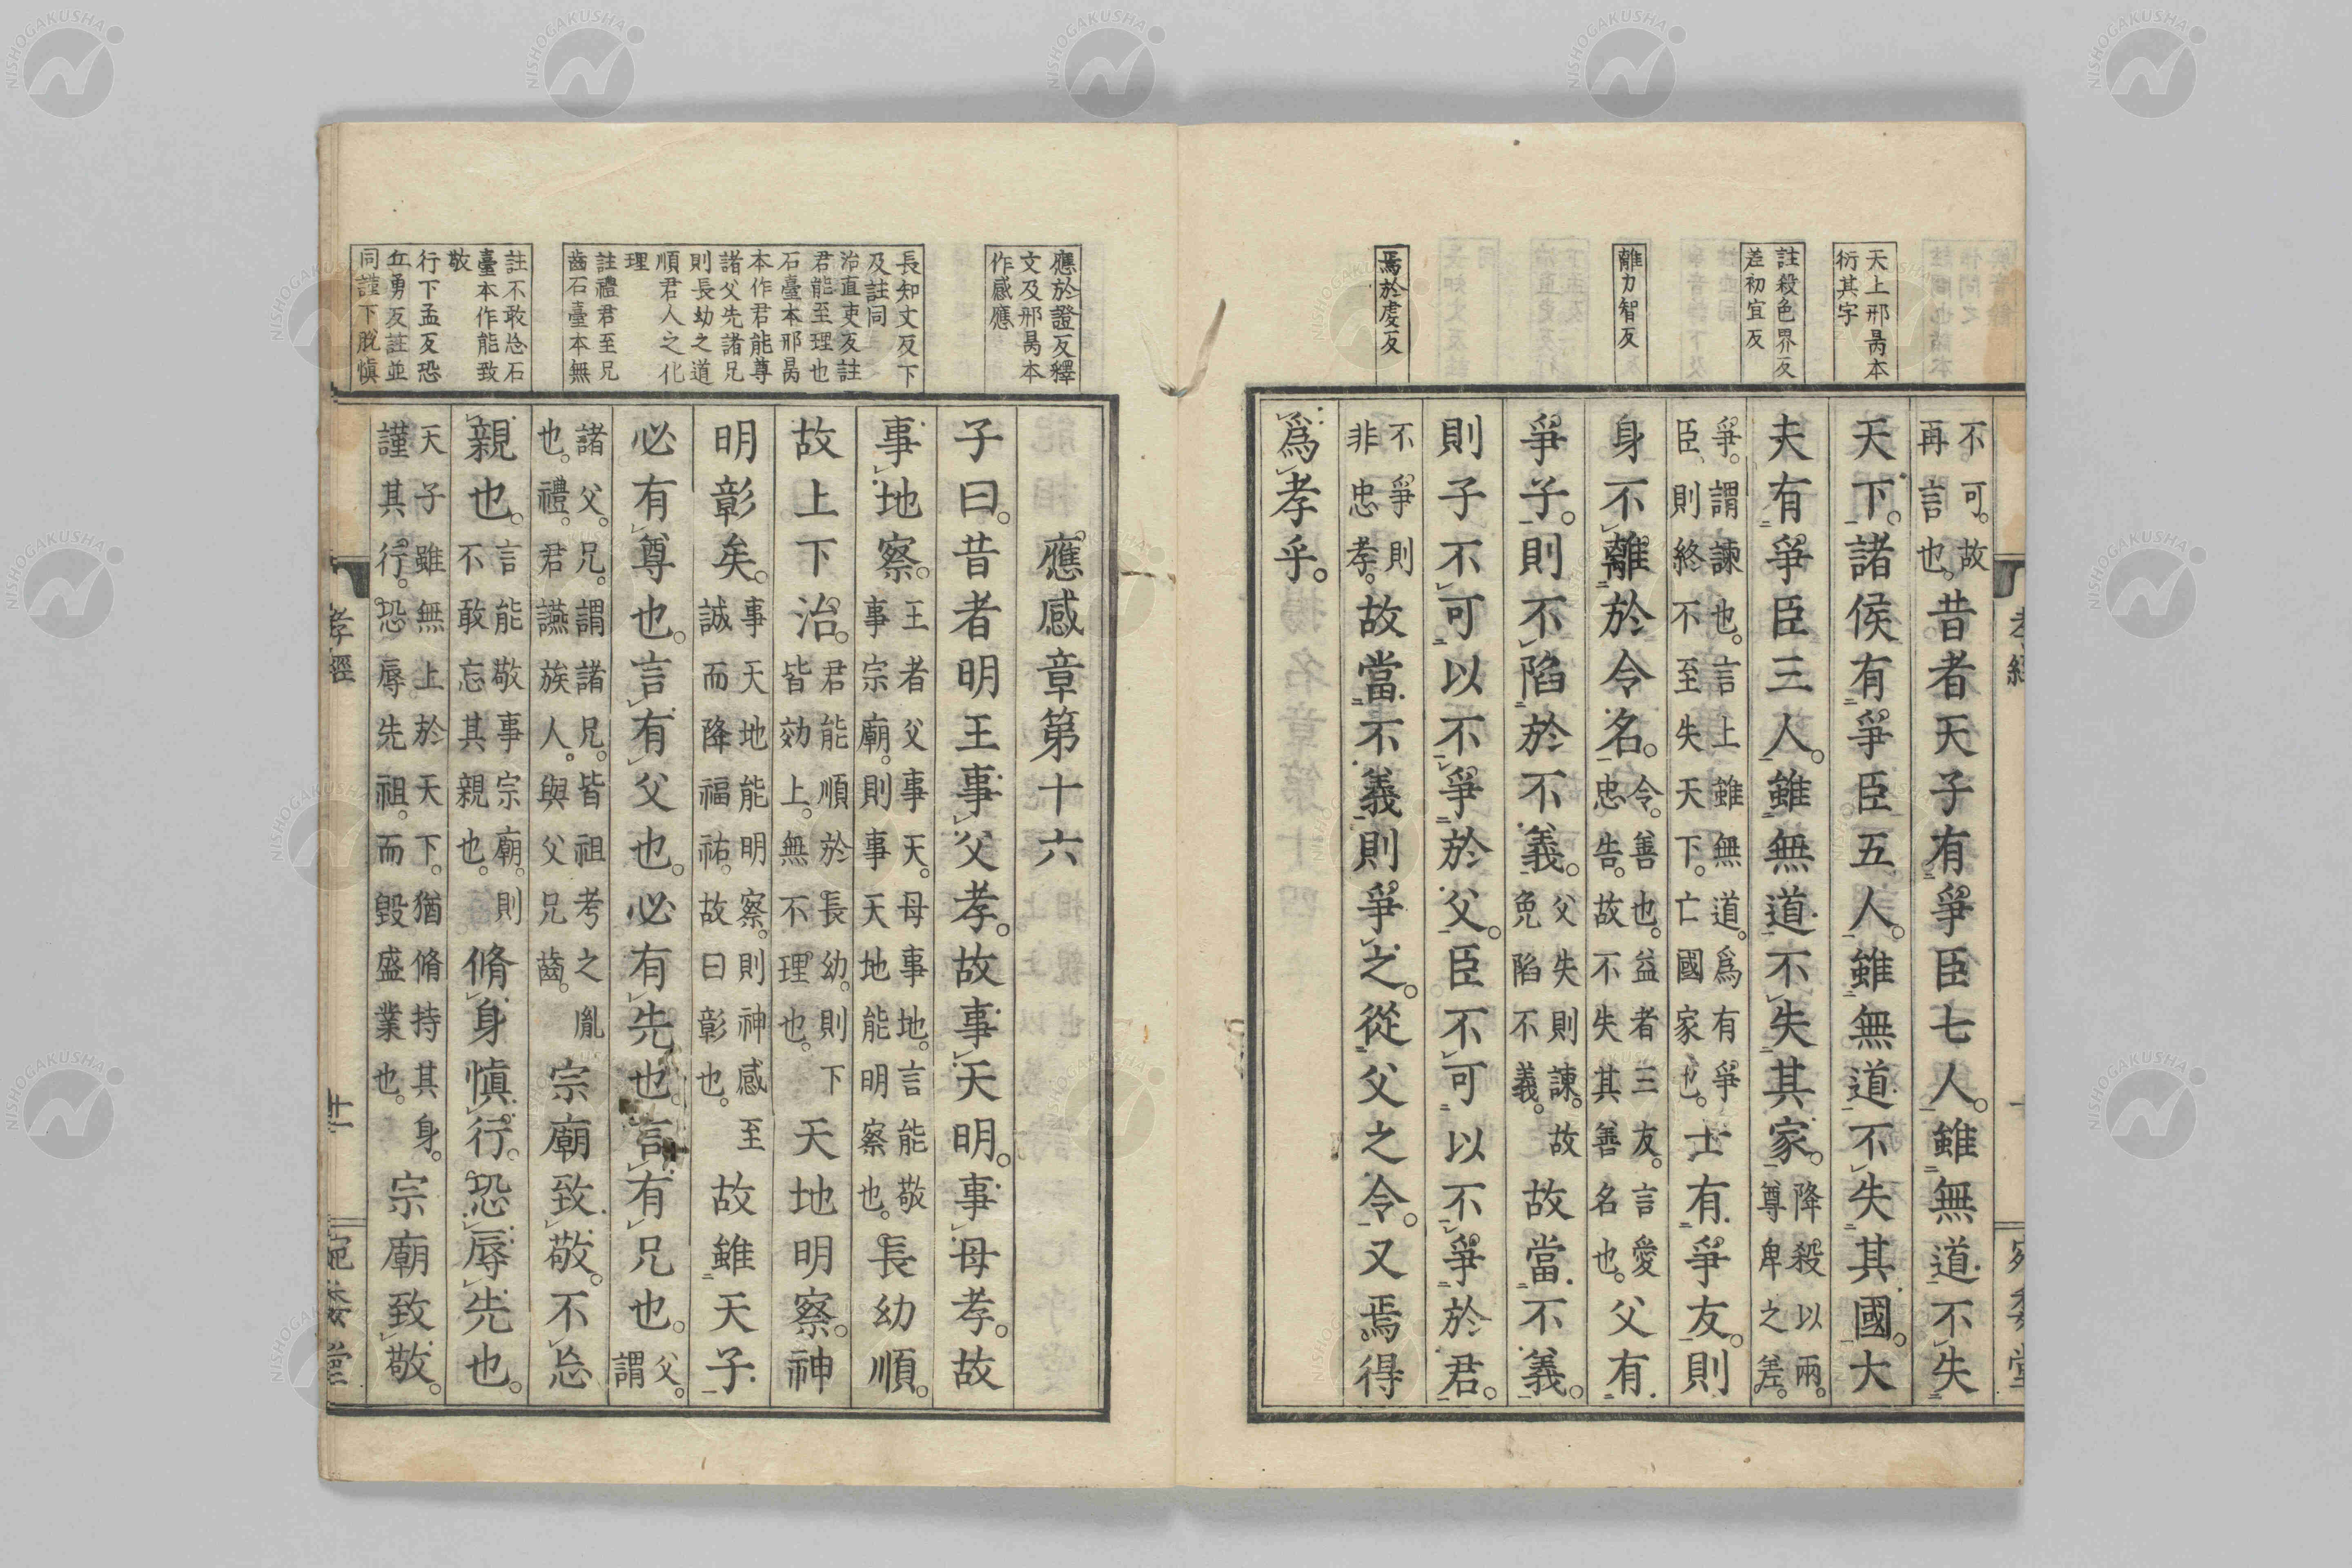 天上邢昺本
衍其字
註殺色界反
差初宜反
離力智反
焉於虔反
不可。故
再言也。昔者天子有爭臣七人。雖無道不失
天下。諸侯有爭臣五人。雖無道不失其國。大
夫有爭臣三人。雖無道不失其家。降殺以兩。
尊卑之差。
爭。謂諫也。言上雖無道。爲有爭
臣、則終不至失天下。亡國家也。士有爭友。則
身不離於令名。令。善也。益者三友。言愛
忠告。故不失其善名也。父有
爭子。則不陷於不義。父失則諫。故
免陷不義。故當不義。
則子不可以不爭於父。臣不可以不爭於君。
不爭則
非忠孝。故當不義則爭之。從父之令。又焉得
爲孝乎。
孝經
應於證反釋
文及邢昺本
作感應
長知丈反下
及註同
治直吏反註
君能至理也
石臺本邢昺
本作君能尊
諸父先諸兄
則長幼之道
順君人之化
理
註禮君至兄
齒石臺本無
註不敢忩石
臺本作能致
敬
行下孟反恐
丘勇反註並
同謹下脫愼
應感章第十六
子曰。昔者明王事父孝。故事天明。事母孝。故
事地察。王者父事天。母事地。言能敬
事宗廟。則事天地能明察也。長幼順。
故上下治。君能順於長幼。則下
皆効上。無不理也。天地明察。神
明彰矣。事天地能明察。則神感至
誠而降福祐。故曰彰也。故雖天子
必有尊也。言有父也。必有先也。言有兄也。父。
謂
諸父。兄。謂諸兄。皆祖考之胤
也。禮。君讌族人。與父兄齒。宗廟致敬。不忩
親也。言能敬事宗廟。則
不敢忘其親也。脩身愼行。恐辱先也。
天子雖無上於天下。猶脩持其身。
謹其行。恐辱先祖。而毀盛業也。宗廟致敬。
孝經